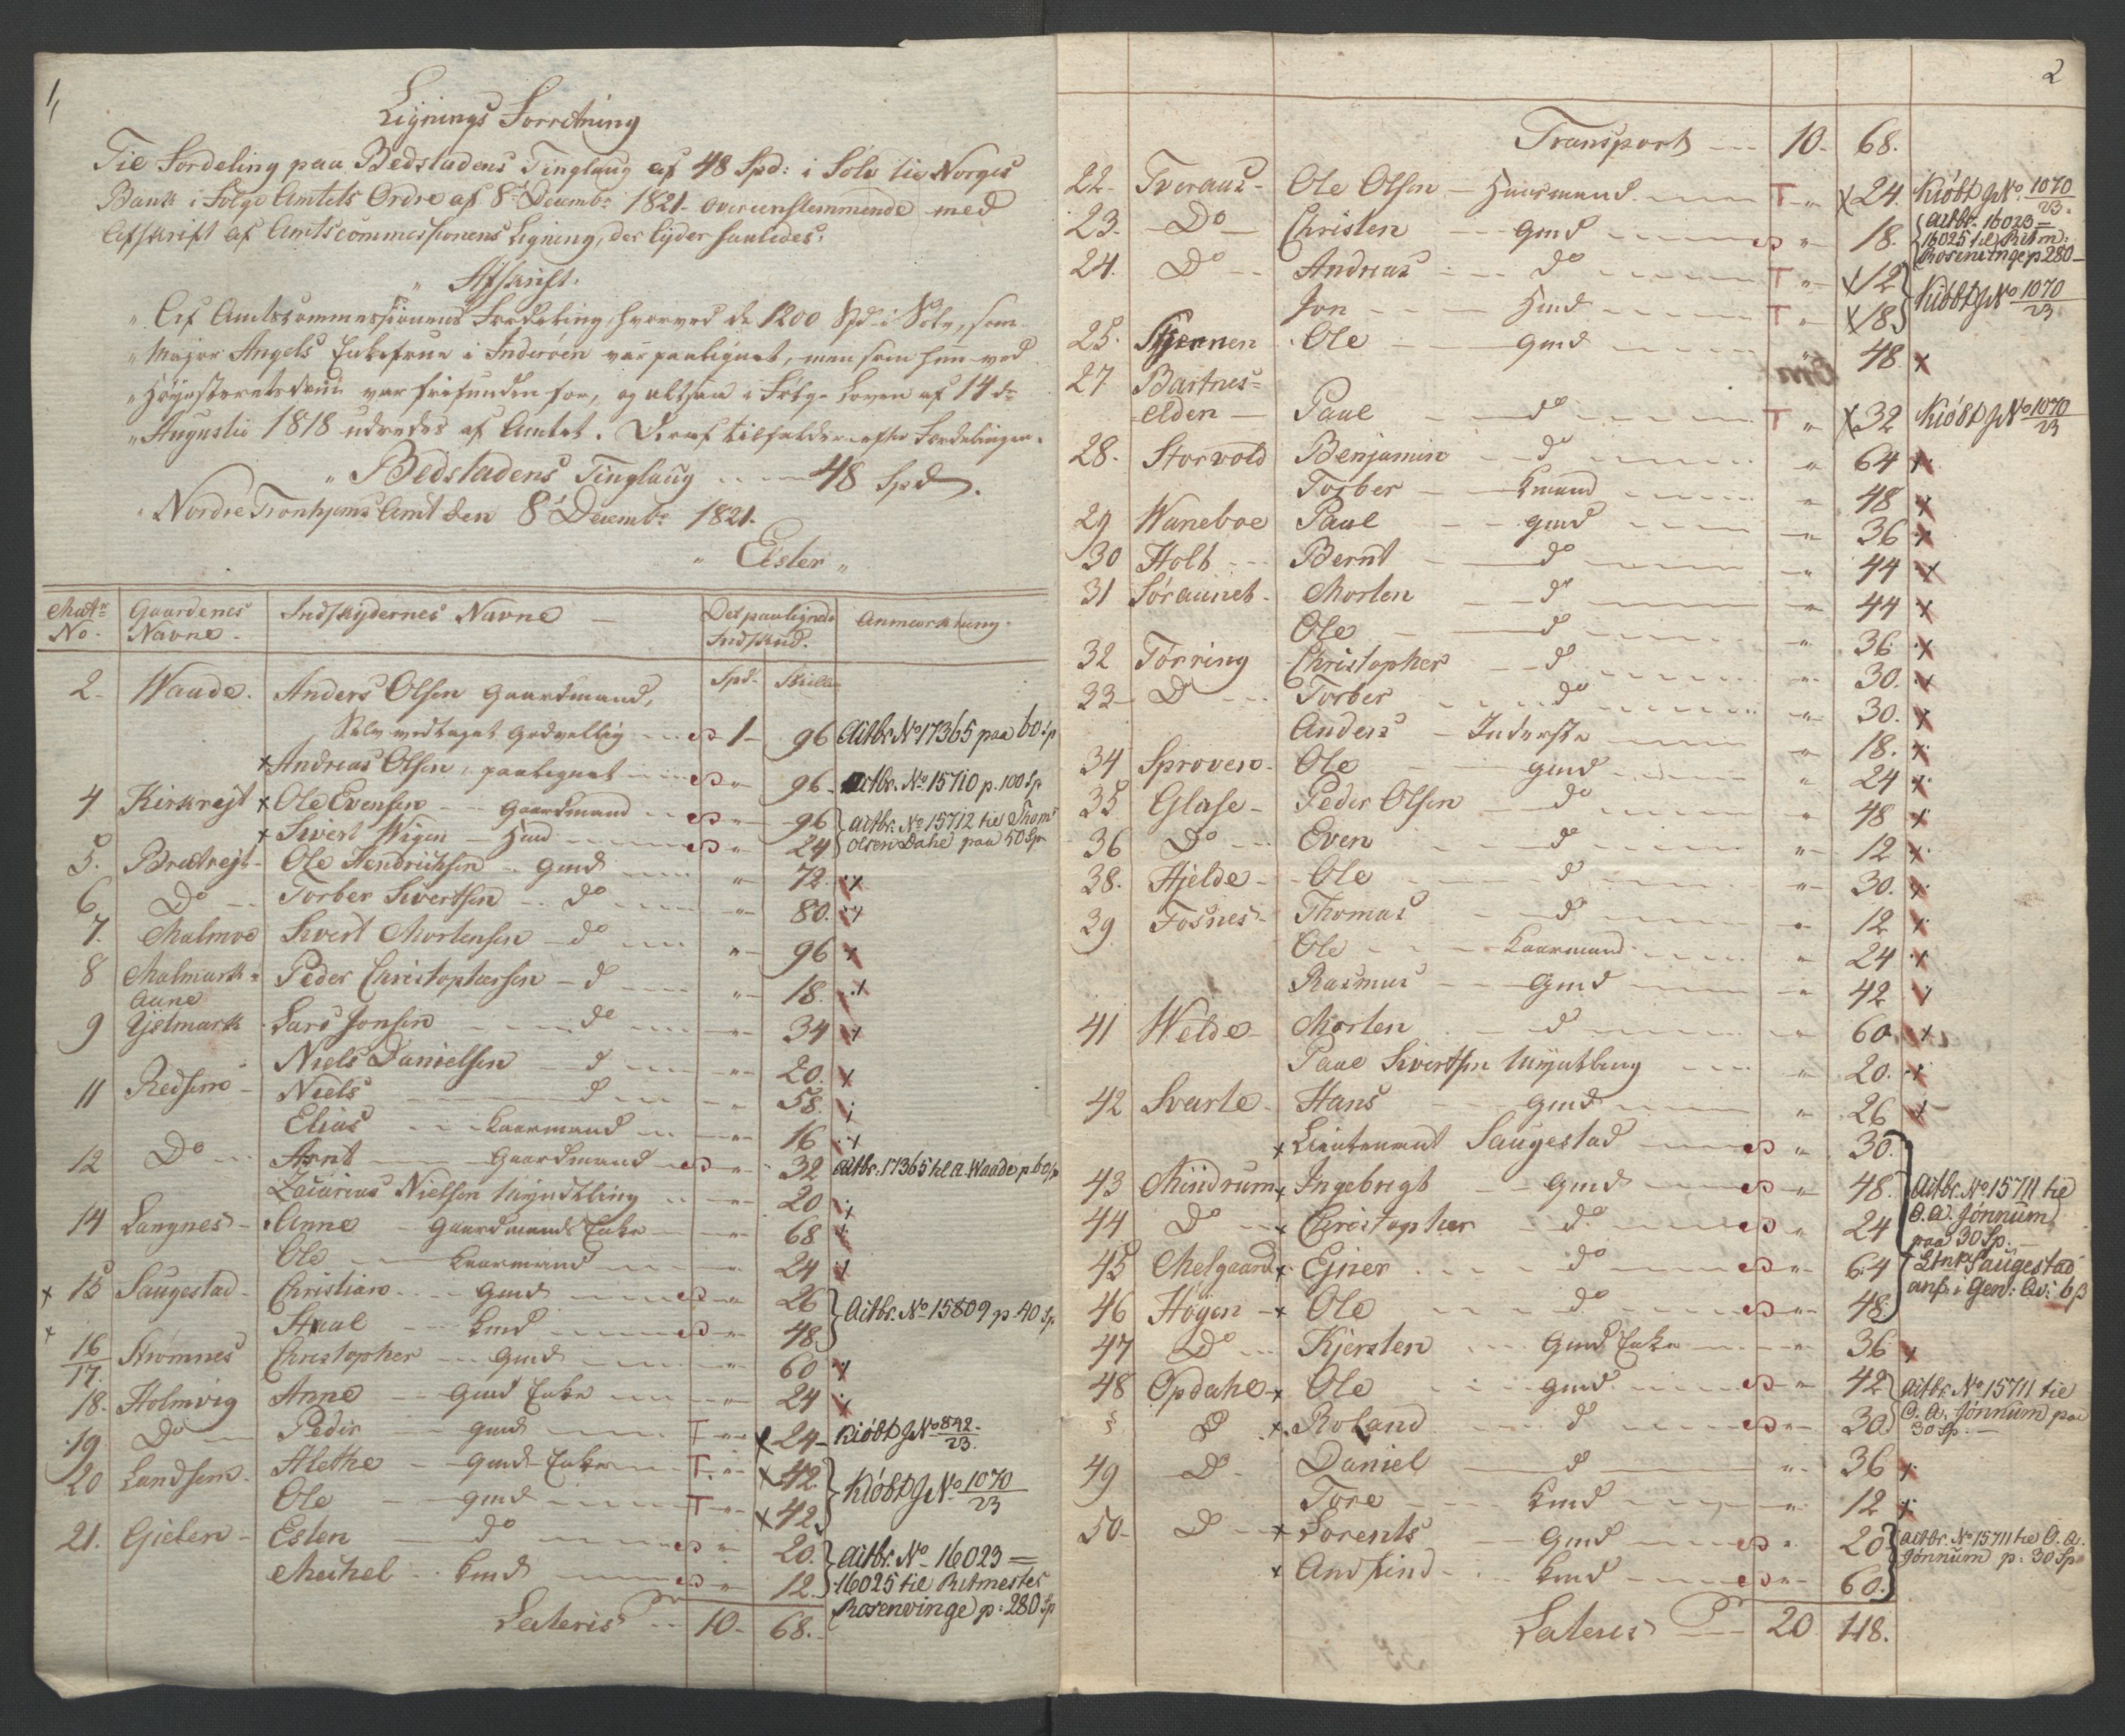 1,
Lignings Forretning
Til Fordeling paa Bedstadens Tinglaug af 48 Spd: i Sølv til Norges
Bank i Følge Amtets Ordre af 8de Decembr 1821 overeenstemmende med
Afskrift af Amtscommissionens Ligning, der lyder saaledes:
" Afskrift.
" Af Amtscommissionens Fordeling, hvorved de 1200 Spd i Sølv, som
" Major Angels Enkefrue i Inderøen var paalignet, men som hun ved
" Høyesteretsdom var frifunden for, og altsaa i Følge Loven af 14de
" Augustii 1818 udredes af Amtet. Deraf tilfalder efter Fordelingen
" Bedstadens Tinglaug .. — 48 Spd.
" Nordre Tronhjems Amt den 8de Decembr 1821.
" Elster "
Matr No. Gaardenes Navne. Indskydernes Navne — Det paalignede Indskud. Anmærkning.
Spd. Skill
2. Waade. Anders Olsen Gaardmand,
Selv vedtaget godvillig 1 96 Actbr. No 17365 paa 60 Sp
x Andreas Olsen, paalignet " 96 Actbr. No 15710 p. 100 Sp
4 Kirkrejt x Ole Evensen Gaardmand " 96 Actbr. No 15712 til Thoms
x Sivert Wigen Hmd " 24 Olsen Dahl paa 50 Sp
5. Brætrejt Ole Hendrichsen Gmd " 72. x
6. Do Torber Sivertsen do " 80. x
7. Malmoe Sivert Mortensen do " 96 x
8 Malmark= Aune Peder Christophersen d " 18. x
9 Hjelmark Lars Jonsen do " 34 x
Niels Danielsen d " 20. x
11 Redsem Niels d " 58. x
Elias Kaarmand " 16 x
12 Do Arnt Gaardmand " 32 Actbr. 17365 til A. Waade p 60 Sp
Zacarias Nielsen Myndtling " 20 x
14 Langnes Anne Gaardmands Enke " 68 x
Ole Kaarmand " 24 x
x 15 Saugestad Christian Gmd " 26 Actbr. No 15809 p. 40 Sp
x Paul Kmd " 48
16/17. Strømnes Christopher Gmd " 60 x
18. Holmvig Anne Gmd Enke " 24 x
19 Do Peder Gmd T " x 24 Kiøbt J No 842/23.
20 Landsem Alethe Gmd Enke T " x 42 Kiøbt J No 1070/23
Ole Gmd T " x 42
21. Gielen Esten do " 20. Actbr. No 16023 =
Michel Kmd " 12. 16025 til Ritmester
Rosenvinge p: 280 Sp
Lateris 10 68.
2
Transport 10 68.
22. Tveraas Ole Olsen Huusmand T " x 24. Kiøbt J No 1070/23.
23. Do Christen Gmd " 18. Actbr. 16023 =
16025 til Ritm: Rosenvinge p 280
24. Do Andreas do T " x 12 Kiøbt J No 1070/23
Jon Hmd T " x 18
25. Stjernen Ole Gmd " 48. x
27 Bartnes= elden Paul d T " x 32 Kiøbt J No 1070/23
28. Storvold Benjamin d " 64 x
Torber Kmand " 48 x
29 Waneboe Paul Gmd " 36 x
30 Holt Bernt do " 44 x
31 Søraunet Morten d " 44 x
Ole d " 36 x
32 Tørring Christopher d " 30. x
33 D Torber do " 30. x
Anders Inderste " 18. x
34 Sproven Ole Gmd " 24 x
35 Glase Peder Olsen do " 48 x
36 Do Even d " 12 x
38. Hjelde Ole d " 30. x
39 Fosnes Thomas d " 12 x
Ole Kaarmand " 24 x
Rasmus Gmd " 42 x
41 Welde Morten d " 60. x
Paul Sivertsen Myntling " 20. x
42 Svarte Hans Gmd " 26 x
x Lieutenant Saugestad " 30.
43 Mindrum x Ingebrigt Gmd " 48. Actbr. No 15711 til
44 Do x Christopher do " 24 O. A. Jønnum paa 30 Sp.
45 Melgaard x Ejner do " 64 Ltnt Saugestad
46 Høyen x Ole do " 48. anf. i Gen: Qv: 6 ß
47 Do Kjersten Gmd Enke " 36 x
48 Opdahl x Ole Gmd " 42 Actbr. No 15711 til
§ D x Roland d " 30 O. A. Jønnum paa 30 Sp.
49 D Daniel d " 36 x
Tore Kmd " 12 x
50 D x Lorents Gmd " 20 Actbr. No 15711 til O. A.
x Andfind Kmd " 60. Jønnum p: 30 Sp
Lateris 20 118.